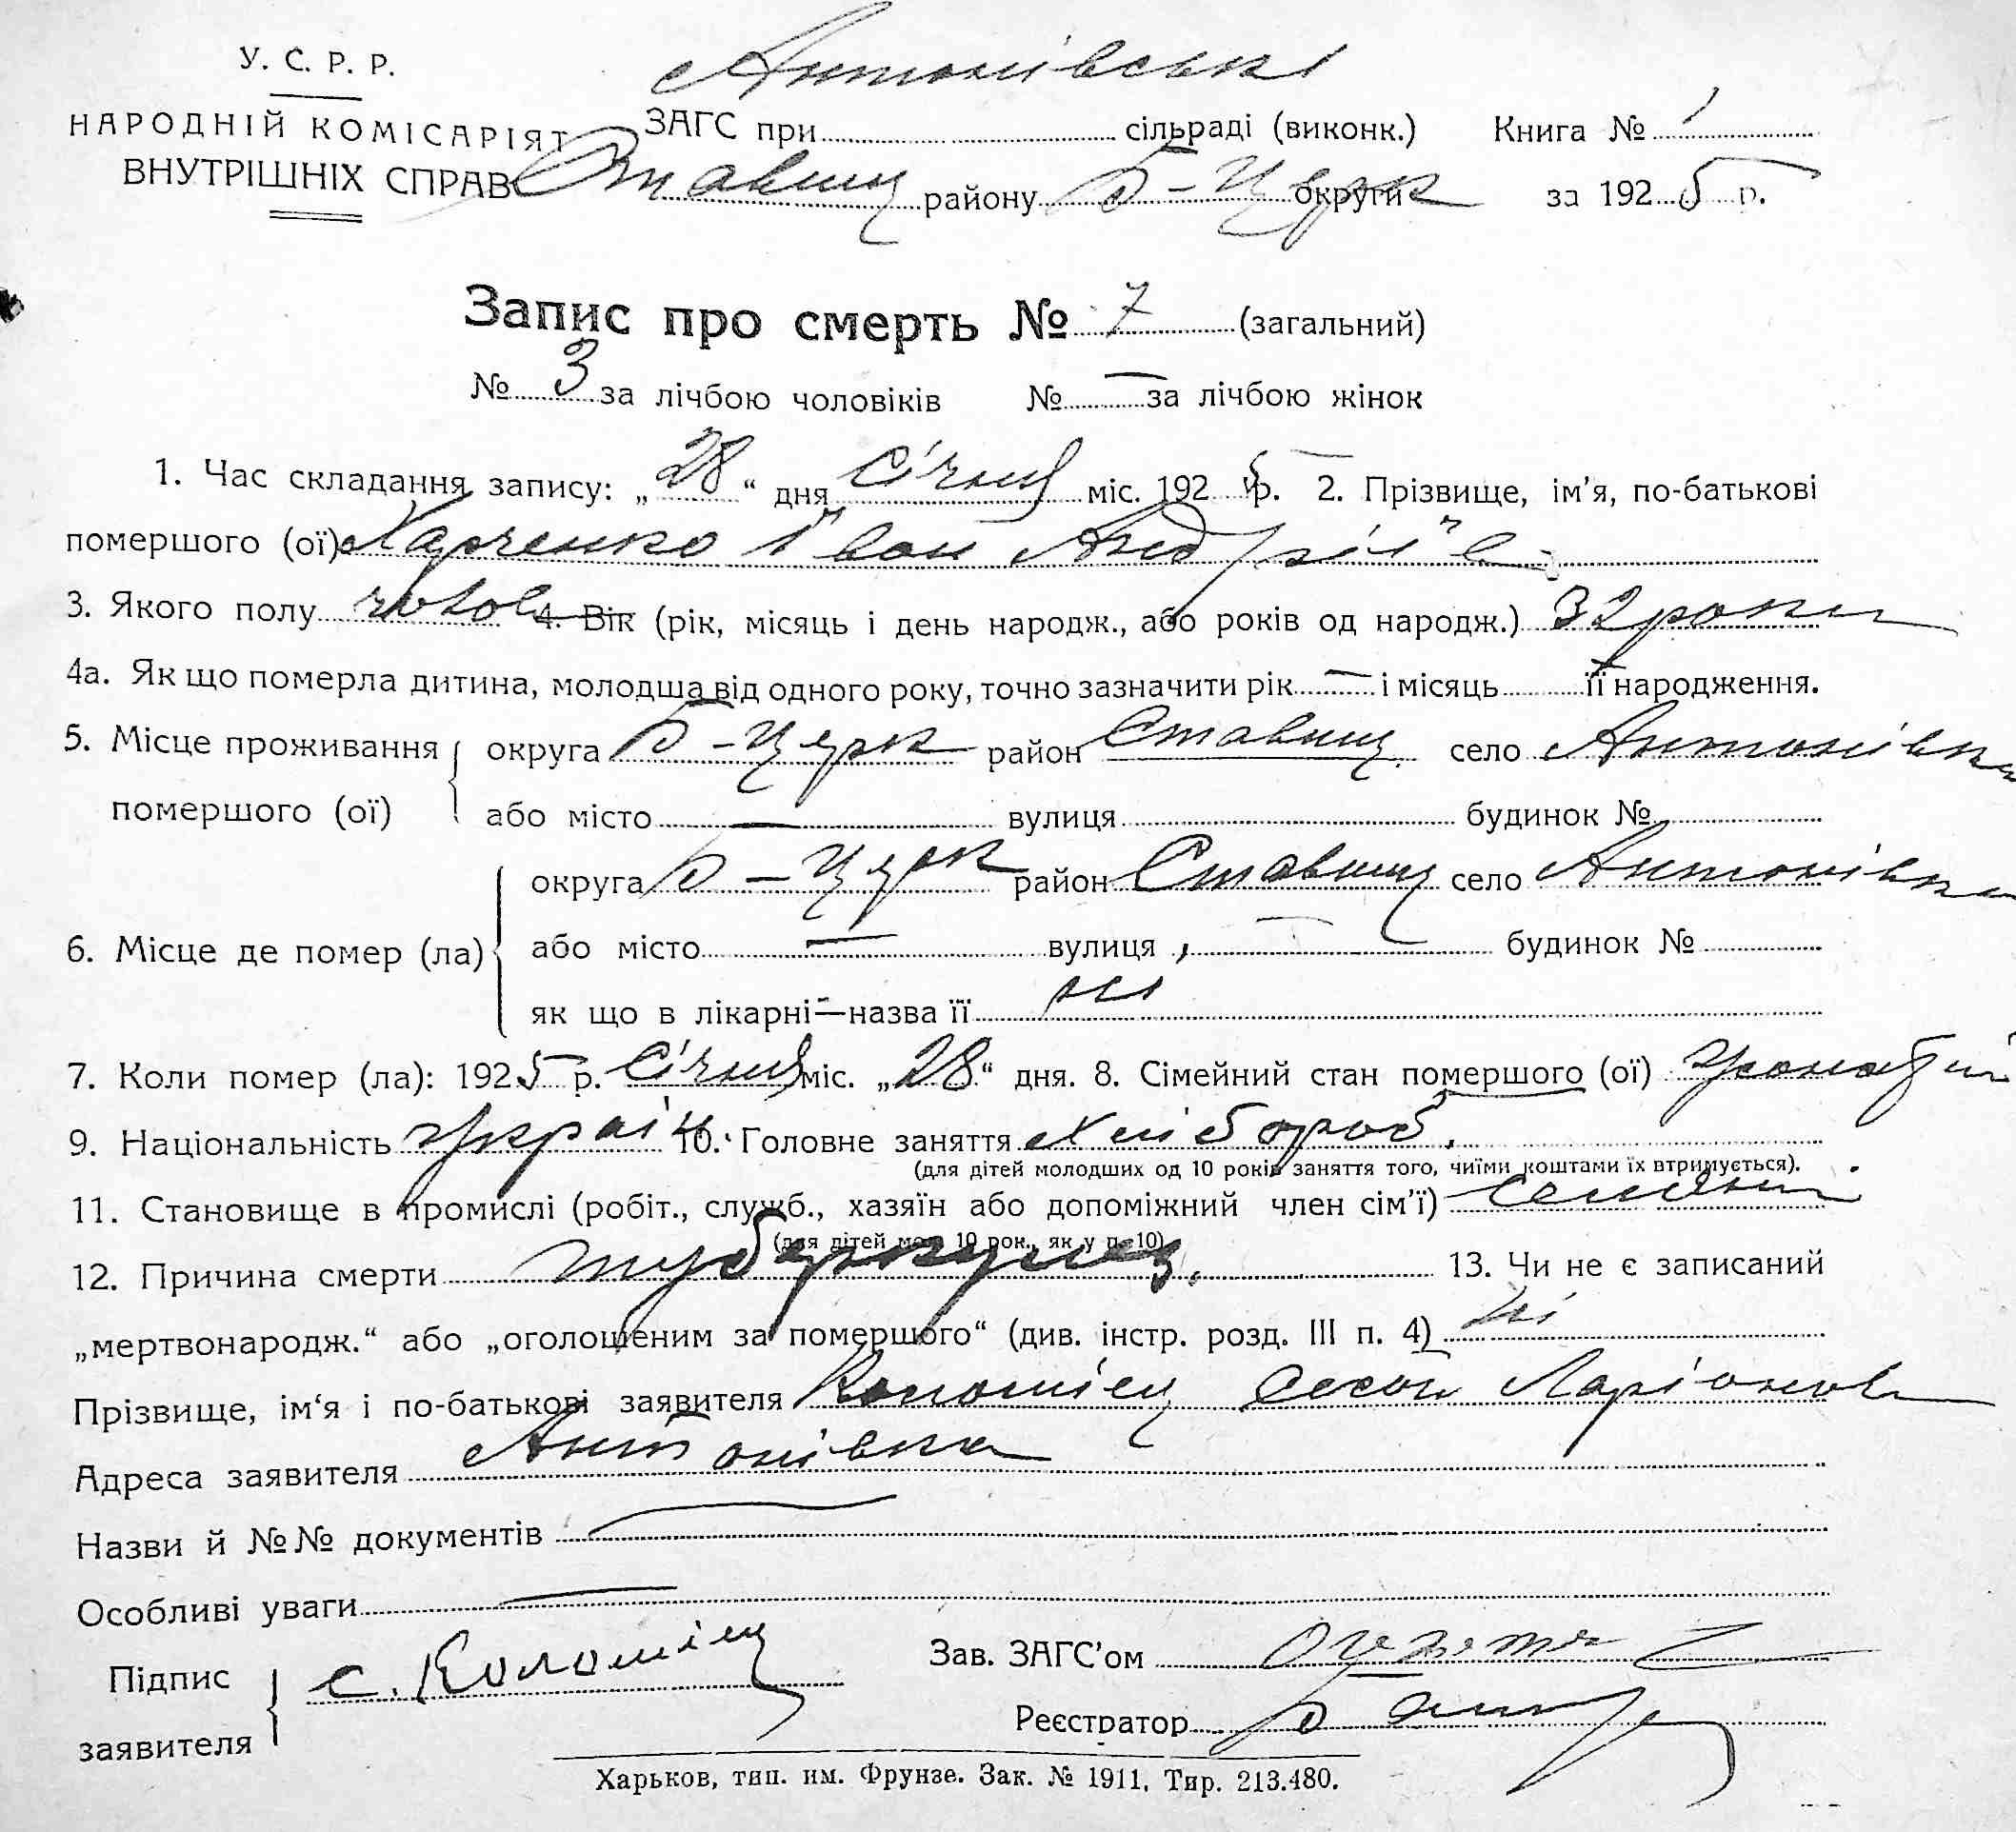 У. С. Р. Р.
НАРОДНІЙ КОМІСАРІЯТ
ВНУТРІШНІХ СПРАВ
Антонівські
ЗАГС при сільраді (виконк.) Книга № 1
Ставищ району Б-Церк округи за 1925 р.
Запис про смерть № 7 (загальний)
№ 3 за лічбою чоловіків № — за лічбою жінок
1. Час складання запису: „28“ дня Січня міс. 1925 р. 2. Прізвище, ім'я, по-батькові
помершого (ої) Харченко Іван Андріїв
3. Якого полу чолов 4. Вік (рік, місяць і день народж., або років од народж.) 32 роки
4а. Як що померла дитина, молодша від одного року, точно зазначити рік — і місяць її народження.
5. Місце проживання помершого (ої) округа Б-Церк район Ставищ. село Антонівка
або місто — вулиця будинок №
6. Місце де помер (ла) округа Б-Церк район Ставищ село Антонівка
або місто — вулиця — будинок №
як що в лікарні—назва її ні
7. Коли помер (ла): 1925 р. Січня міс. „28“ дня. 8. Сімейний стан помершого (ої)
9. Національність україн 10. Головне заняття хлібороб.
(для дітей молодших од 10 років заняття того, чиїми коштами їх втримується).
11. Становище в промислі (робіт., служб., хазяїн або допоміжний член сім'ї)
(для дітей мол. 10 рок., як у п. 10)
12. Причина смерти туберкульоз. 13. Чи не є записаний
„мертвонародж.“ або „оголошеним за помершого“ (див. інстр. розд. III п. 4) ні
Прізвище, ім‘я і по-батькові заявителя Коломієц Ларіонов
Адреса заявителя Антонівка
Назви й №№ документів —
Особливі уваги —
Підпис заявителя с. Коломієц
Зав. ЗАГС'ом
Реєстратор
Харьков, тип. им. Фрунзе. Зак. № 1911, Тир. 213.480.